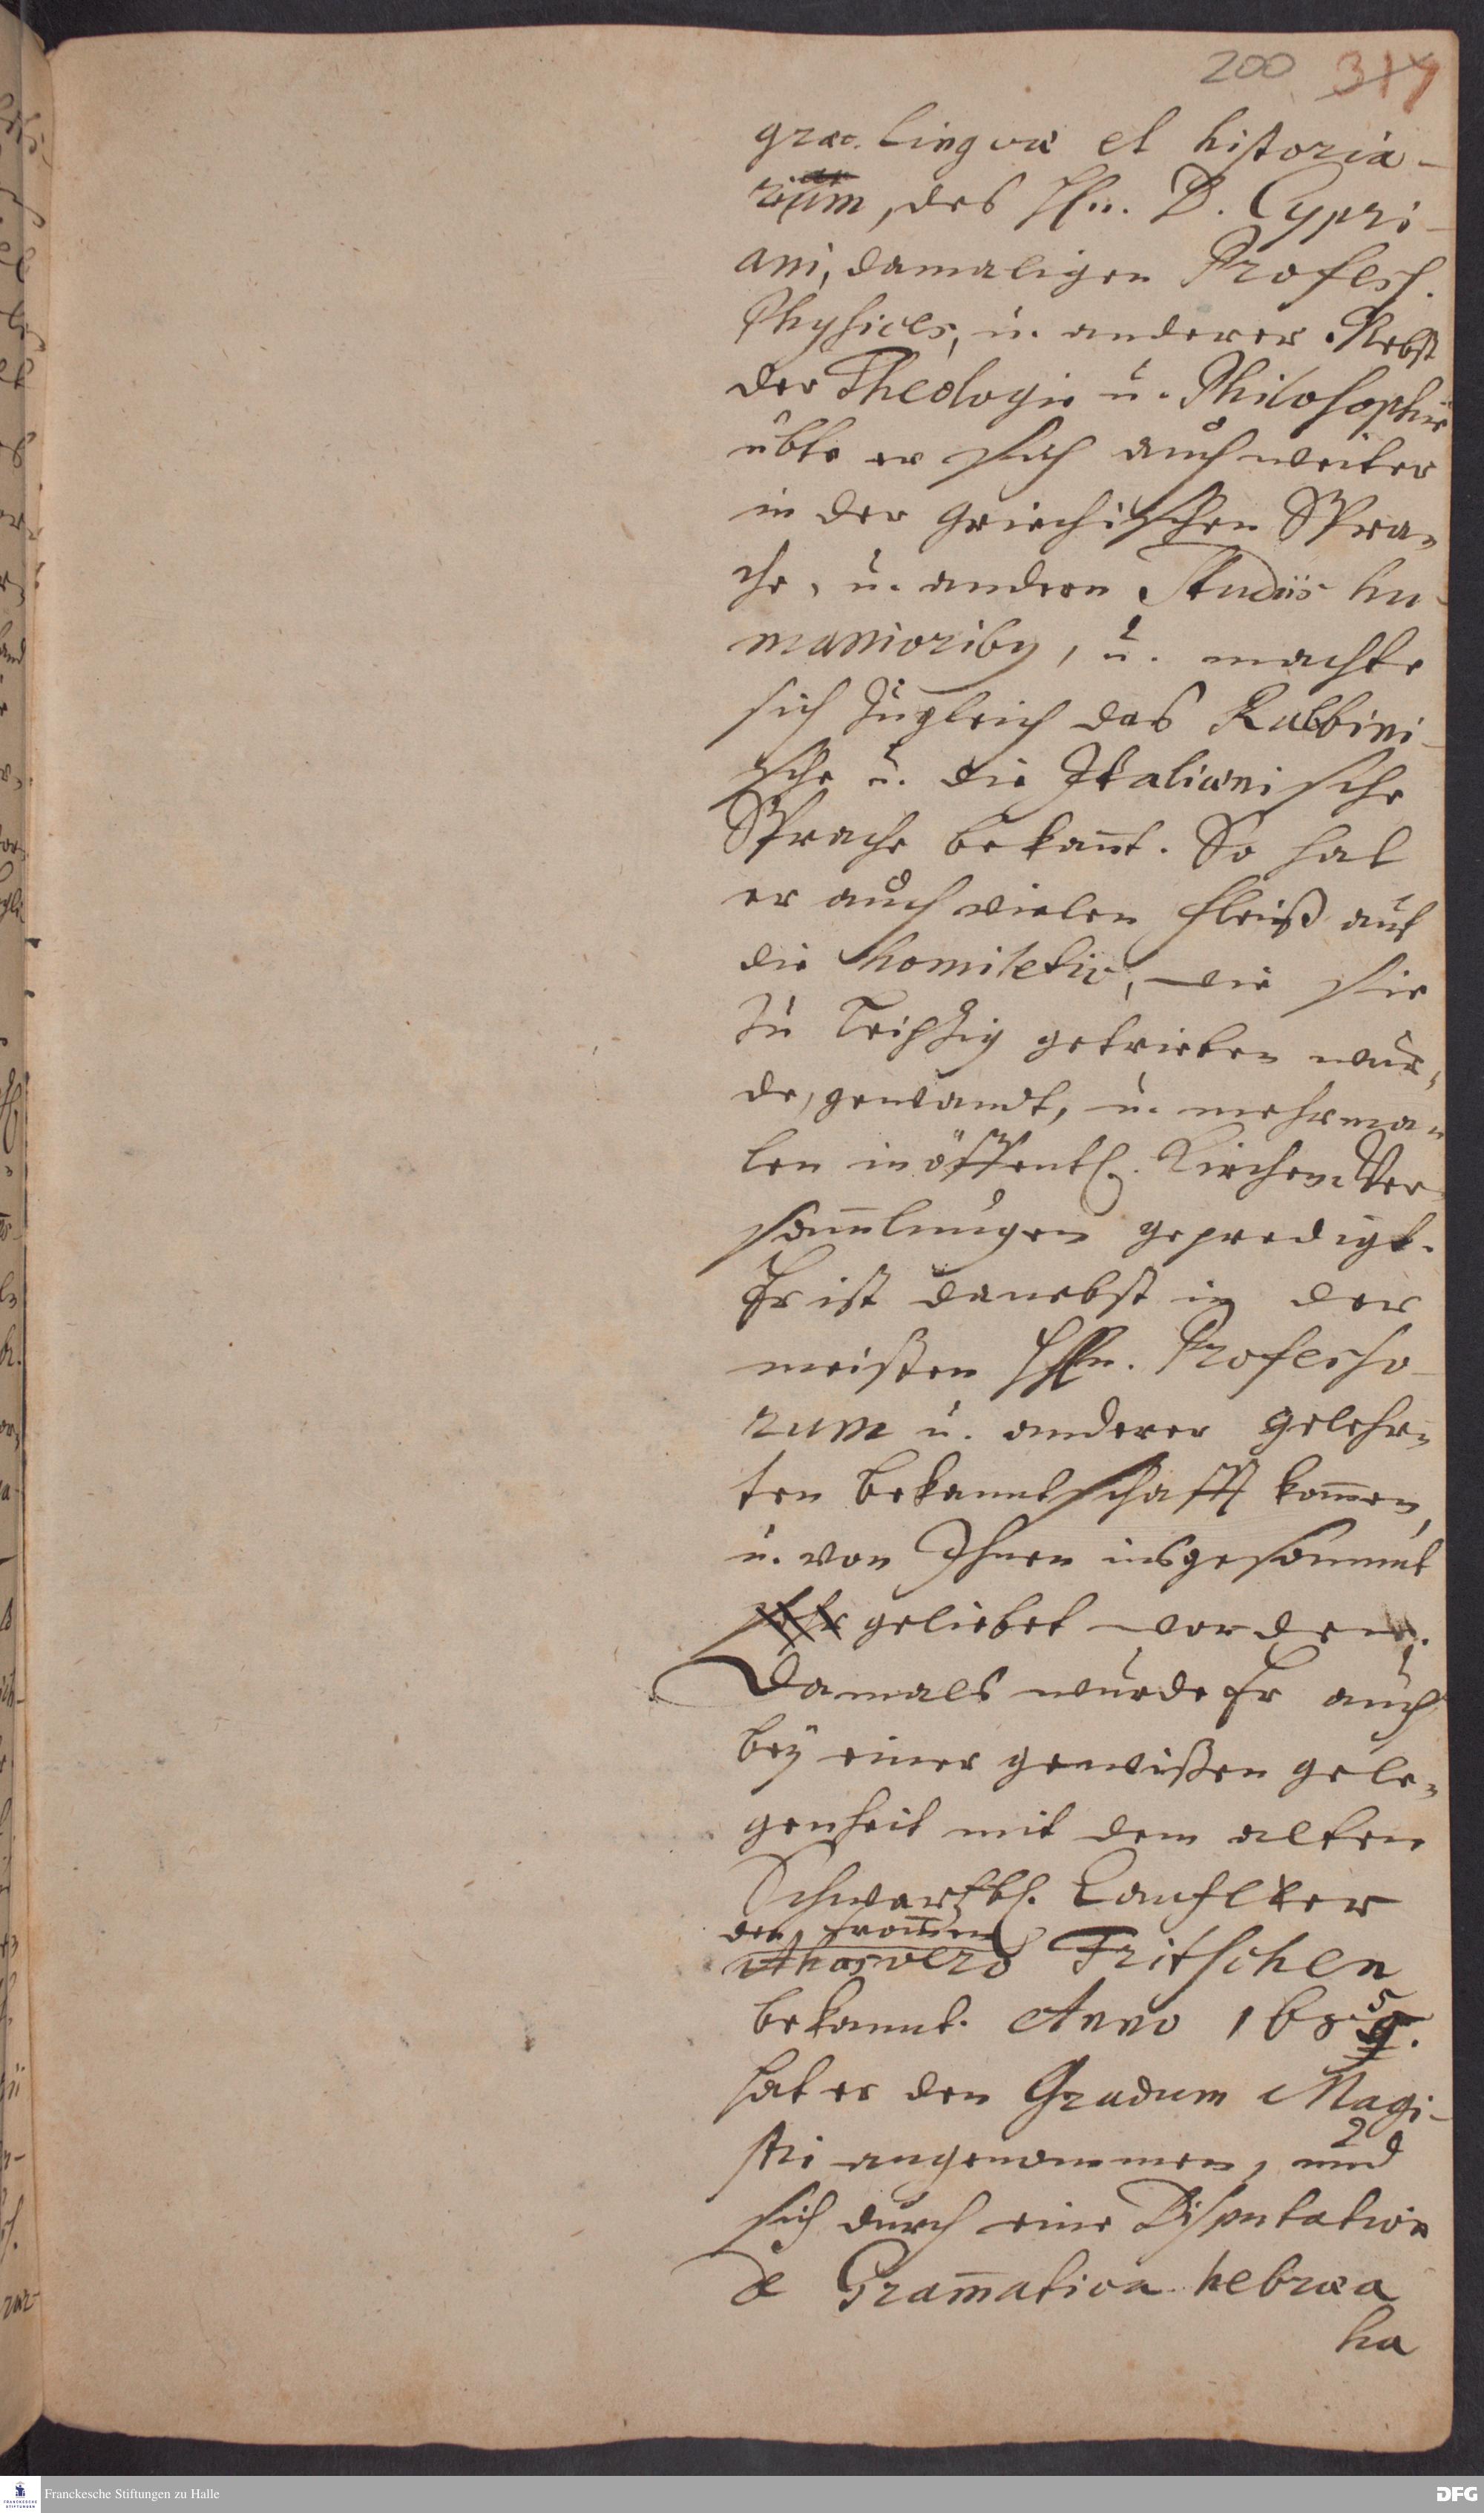 200 317
græc. linguæ et historia-
rum, des Hn. D. Cypri-
ani, damaligen Profess.
Physices, u. anderer. Nebst
der Theologie u. Philosophie
übte er sich auch weiter
in der griechischen Spra-
che, u. andern Studiis hu-
manioribus, u. machte
sich zugleich das Rabbini-
sche u. die Italiænische
Sprache bekañt. So hat
er auch vielen fleiß auf
die homiletic, wie sie
zu Leipzig getrieben wur-
de, gewandt, u. mehrma-
len in öffentl. Kirchen-Ver-
sam̄lungen geprediget.
Er ist danebst in der
meisten HHn. Professo-
rum u. anderer gelehr-
ten bekanntschafft kom̄en,
u. von Ihnen insgesammt
sehr geliebet worden.
Damals wurde Er auch
bey einer gewißen gele-
genheit mit dem alten
Schwartzb. Cantzler
den from̄en
Ahasvero Fritschen
bekannt. Anno 1685.
hat er den Gradum Magi-
stri angenommen, und
sich durch eine Disputation
de Gram̄atica hebræa
ha
Franckesche Stiftungen zu Halle
DFG